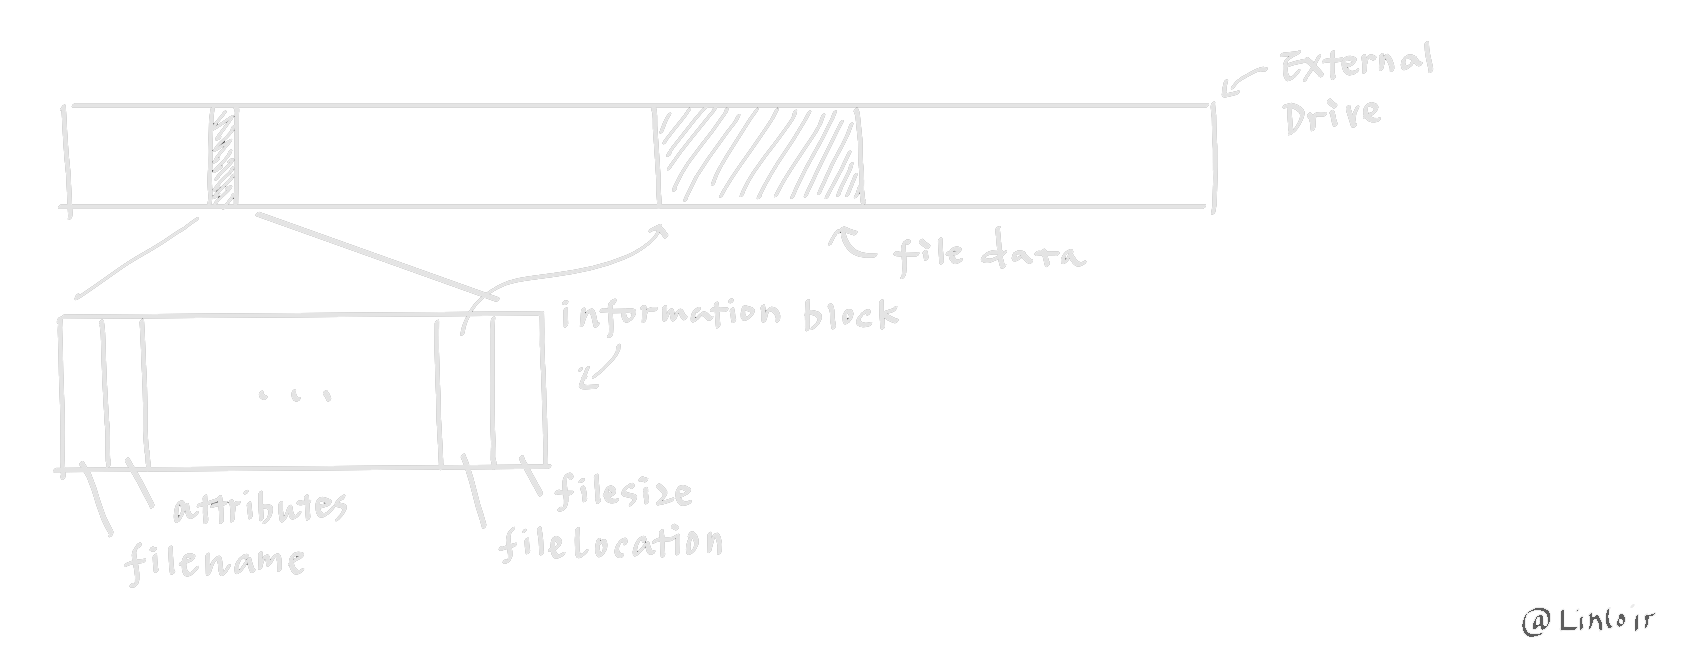 External
Drive
file data
information block
...
attributes
filesize
filename
filelocation
@Linloir